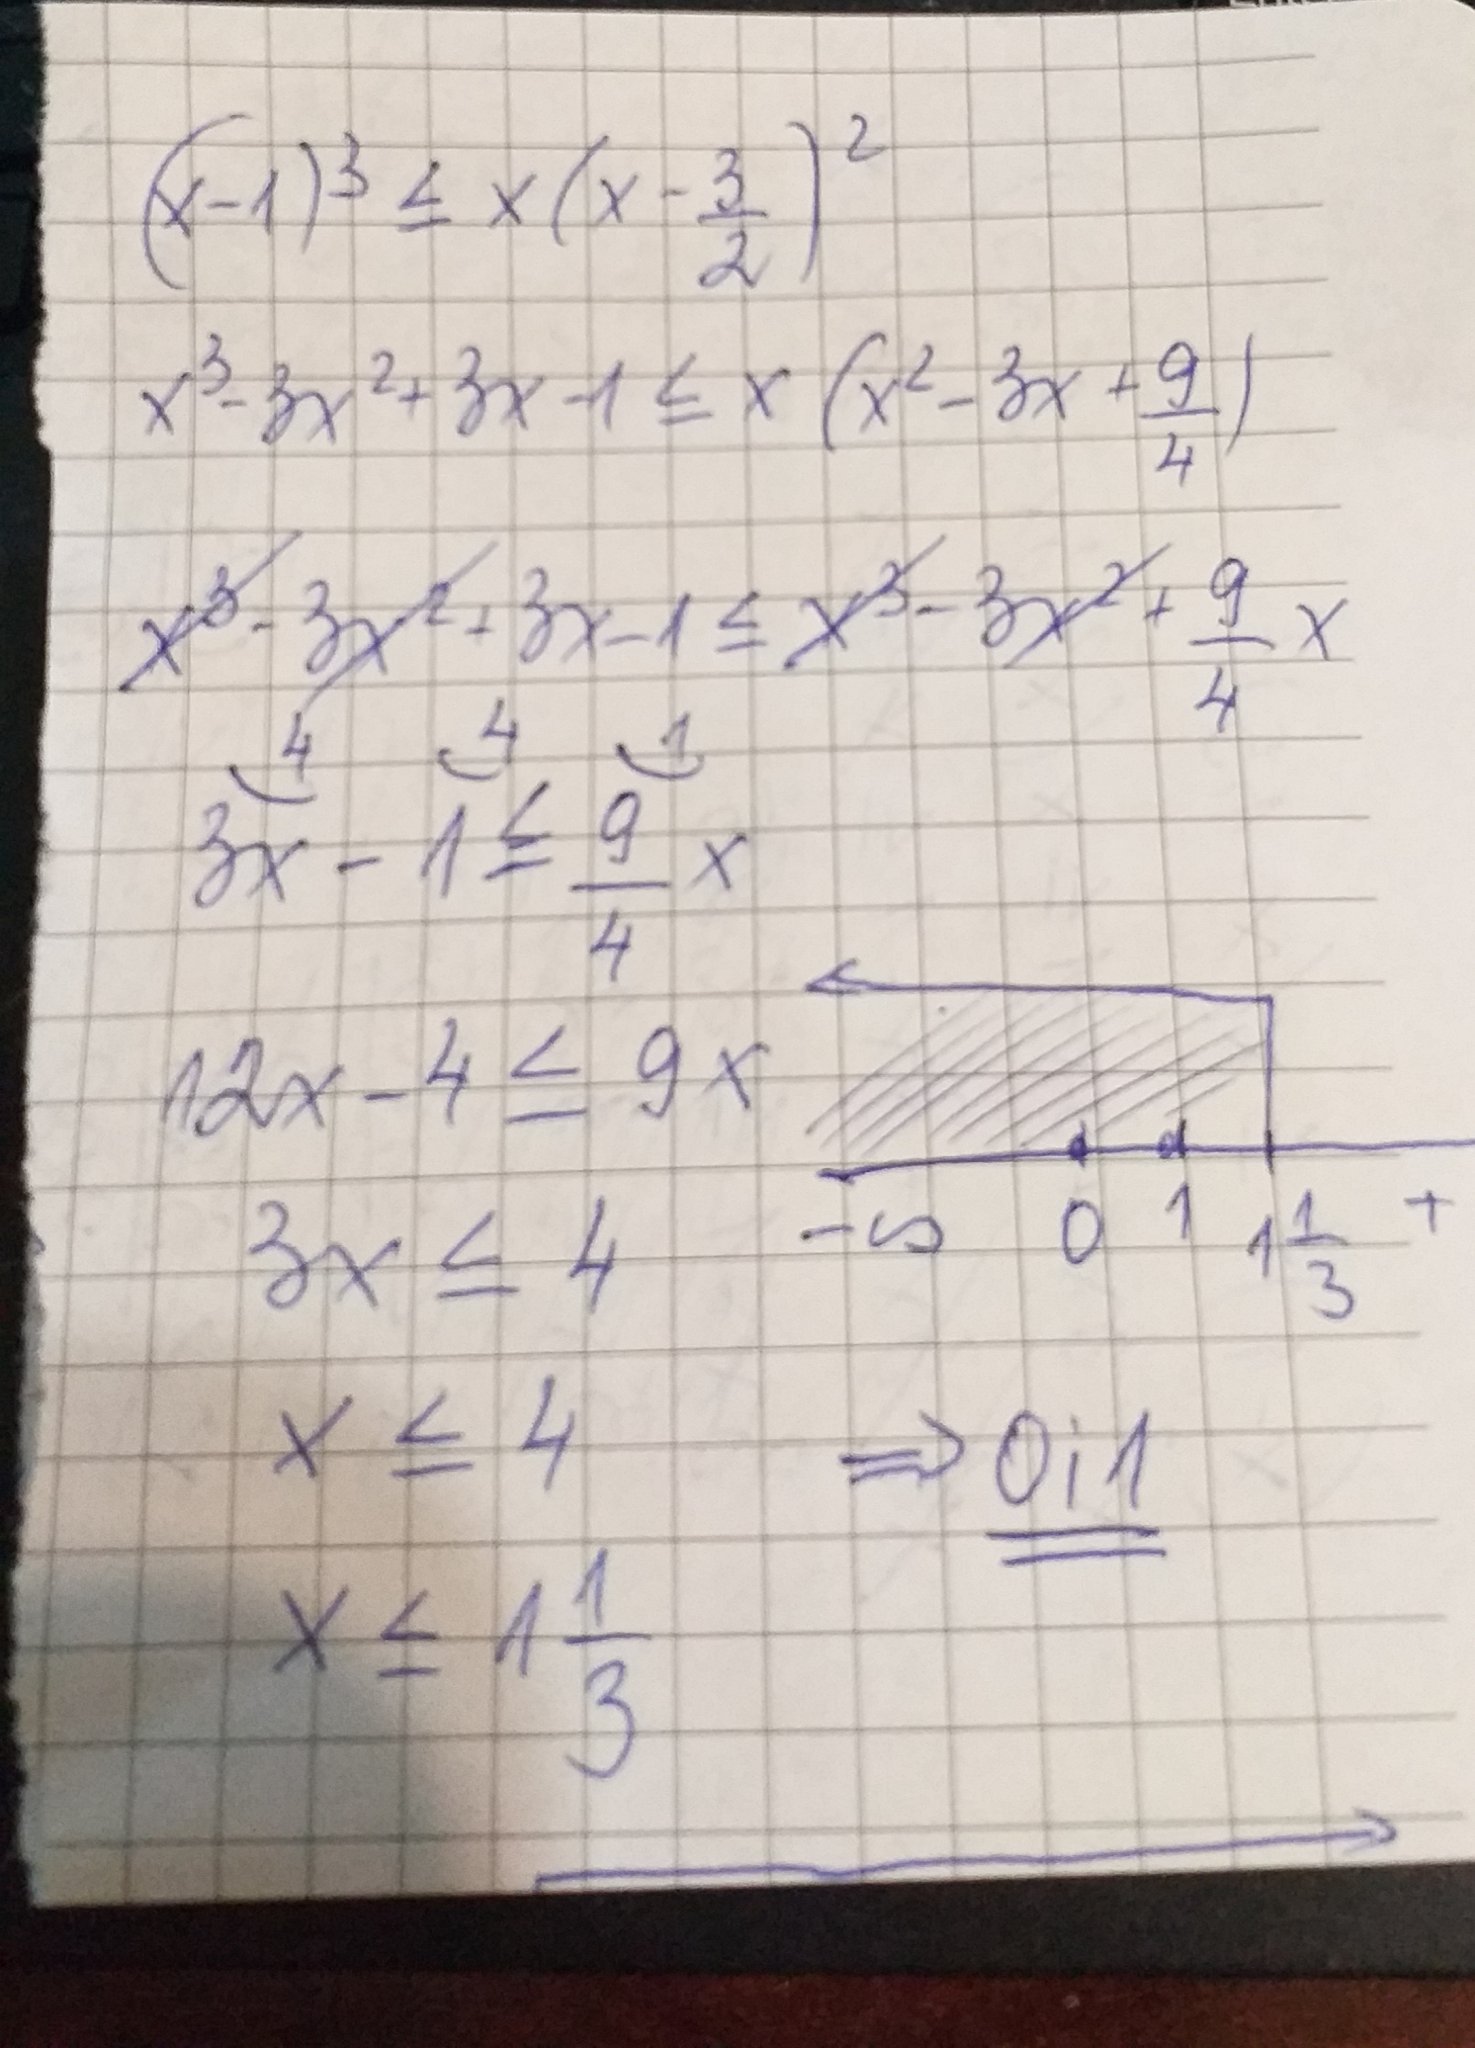 (x-1)³ ≤ x(x - 3/2)²
x³ - 3x² + 3x - 1 ≤ x (x² - 3x + 9/4)
x³ - 3x² + 3x - 1 ≤ x³ - 3x² + 9/4 x
4 4 1
3x - 1 ≤ 9/4 x
12x - 4 ≤ 9x
-∞ 0 1 1 1/3 +
3x ≤ 4
x ≤ 4 ⇒ 0 i 1
x ≤ 1 1/3